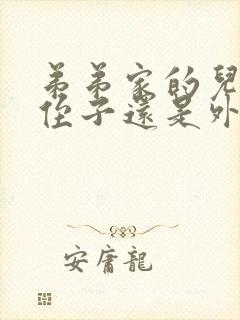 弟弟家的兒
侄子還是外
安庸龍